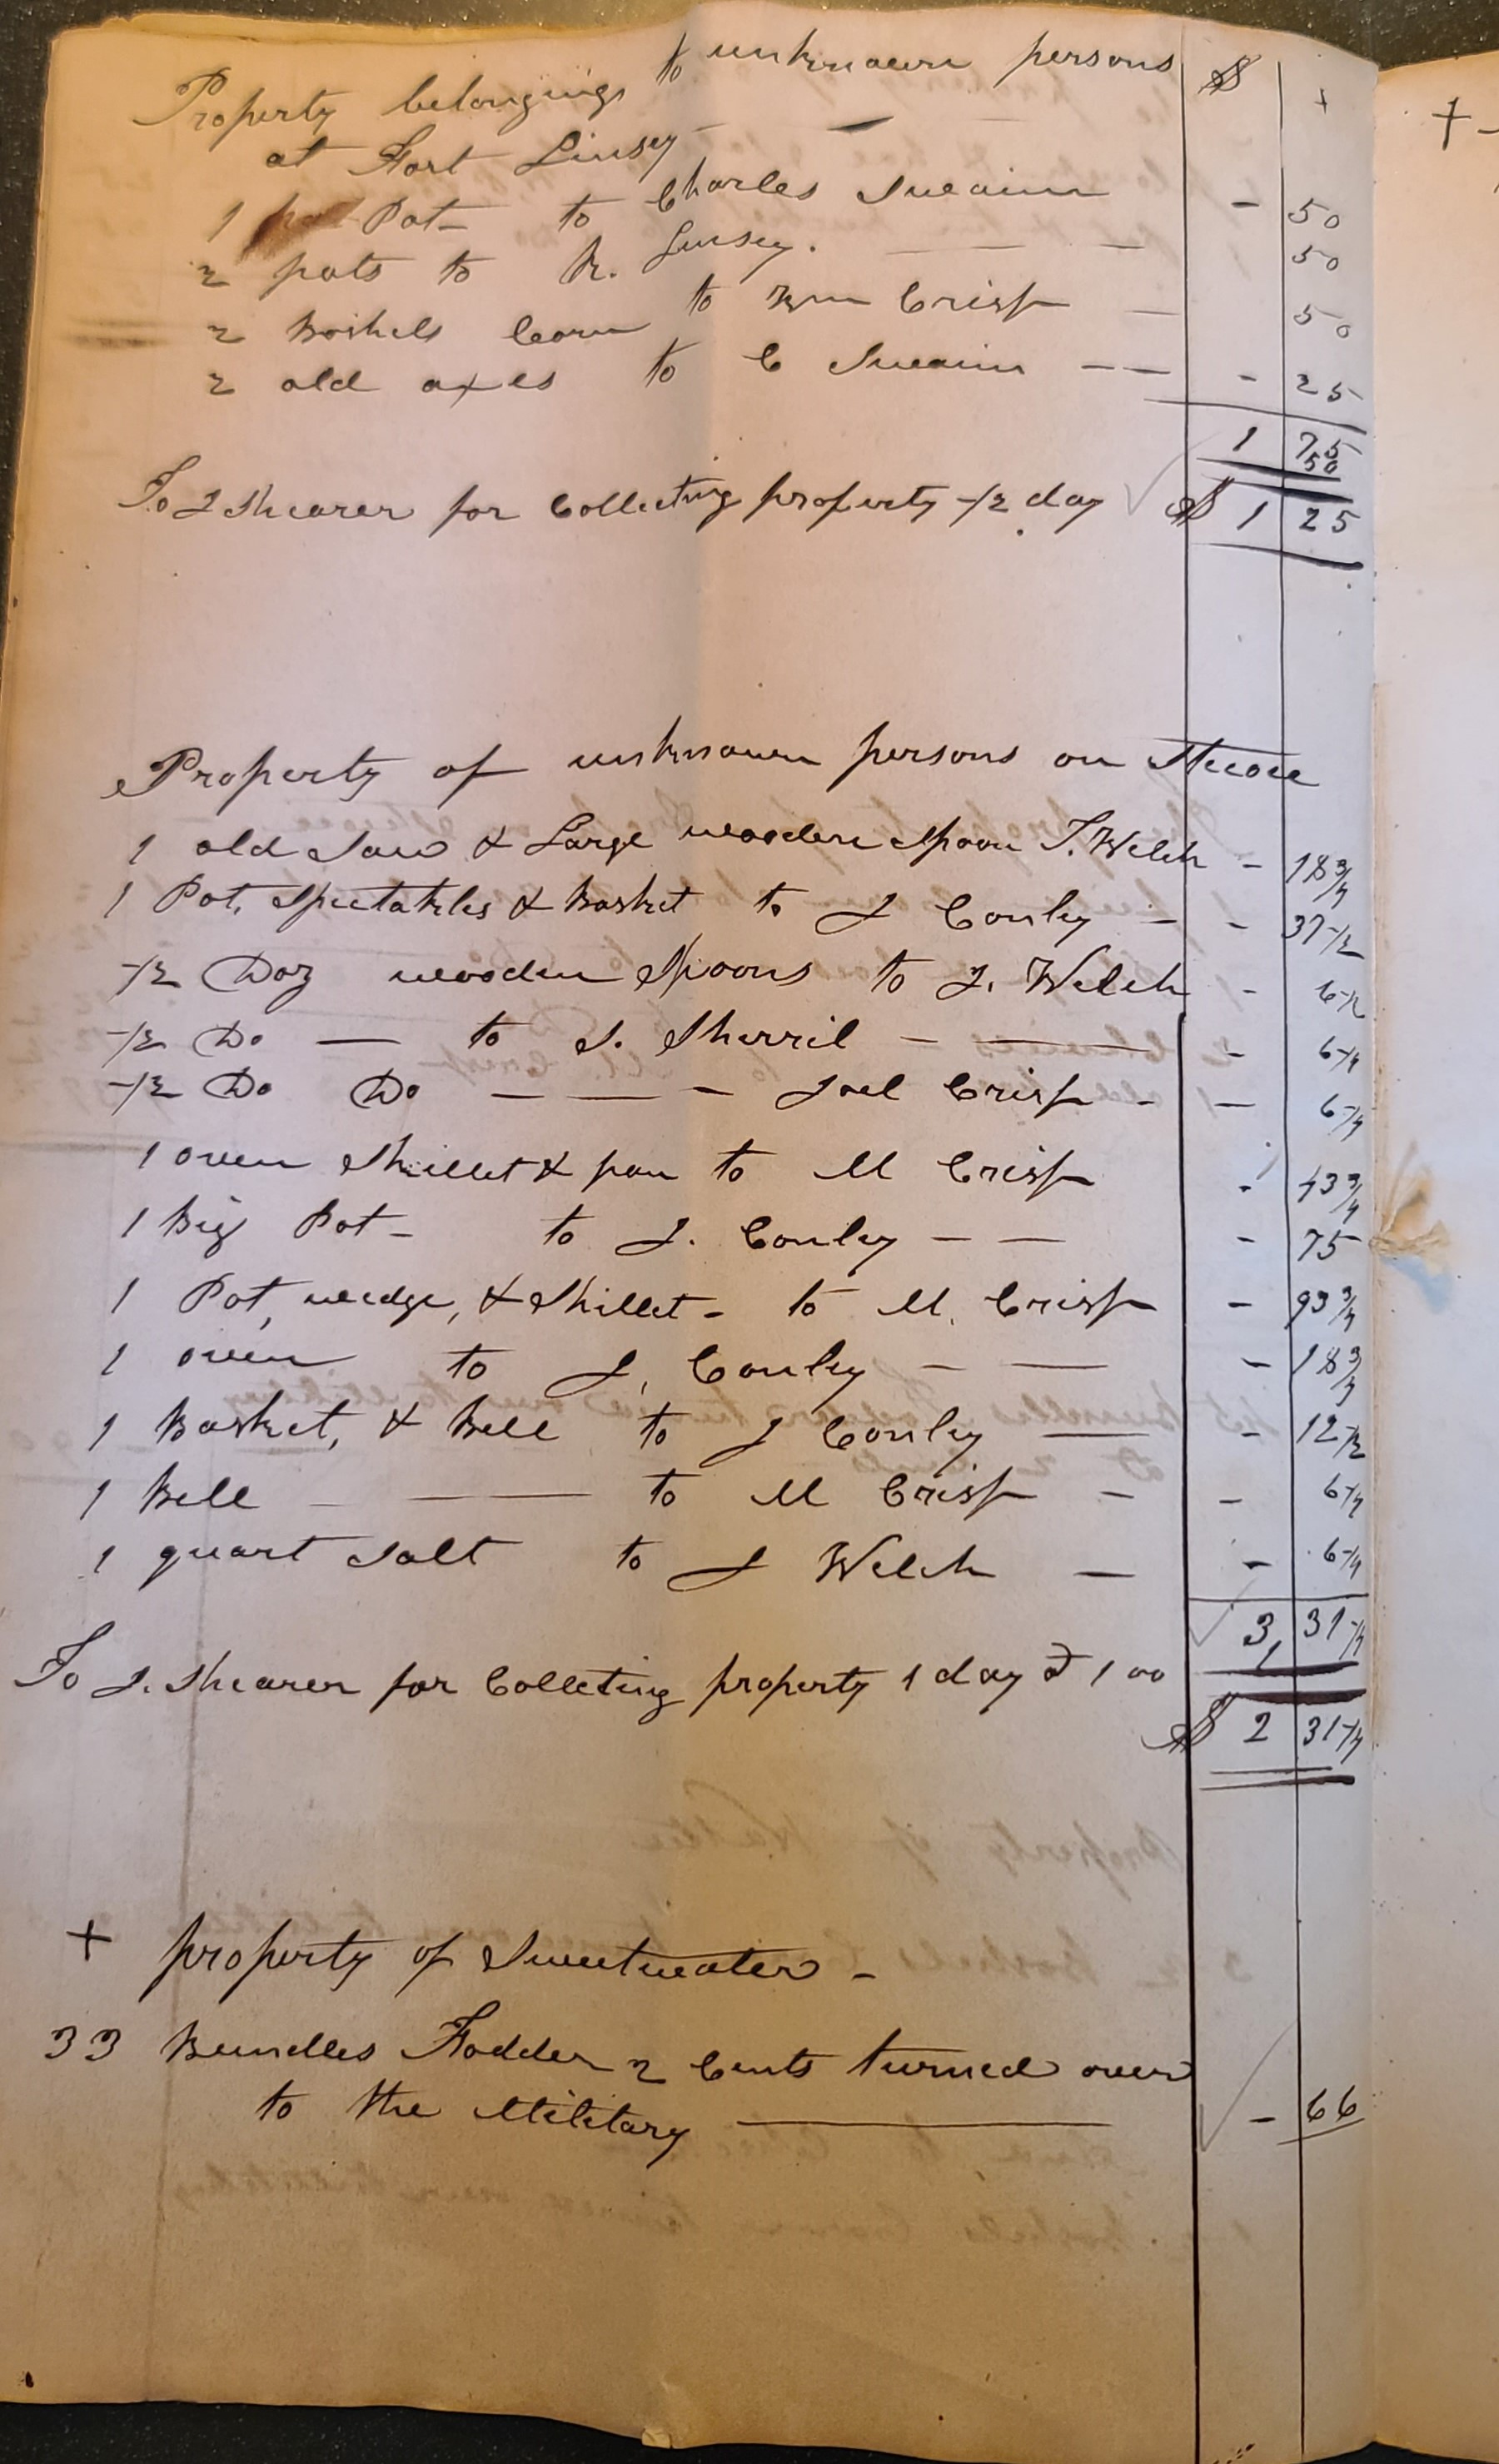 Property belonging to unknown persons $ +
at Fort Linsey
1 Pot to Charles Sweainn - 50
2 pots to R. Linsey. 50
2 Boshels Corn to Wm Crisp 50
2 old axes to C Sweainn - 25
1 75
50
To J Shearer for Collecting property 1/2 day $ 1 25
Property of unknown persons on Stecoee
1 old Saw & Large wooden Spoon J. Welch - 18 3/4
1 Pot, Spectakles & Basket to J Conley - 37 1/2
1/2 Doz wooden Spoons to J. Welch - 6 1/2
1/2 Do — to S. Sherril - 6 1/4
1/2 Do Do — Joel Crisp - 6 1/4
1 oven Skillet & pan to M Crisp - 43 3/4
1 Big Pot - to J. Conley - 75
1 Pot, wedge, & Skillet - to M. Crisp - 93 3/4
1 oven to J, Conley - 18 3/4
1 Basket, & Bell to J Conley - 12 1/2
1 Bell - to M Crisp - 6 1/4
1 quart Salt to J Welch - 6 1/4
3, 31 1/4
To J. Shearer for Colleting property 1 day @ 1 00
$ 2 31 1/4
+ property of Sweetwater -
33 Bundles Fodder 2 Cents turned over
to the Military - 66